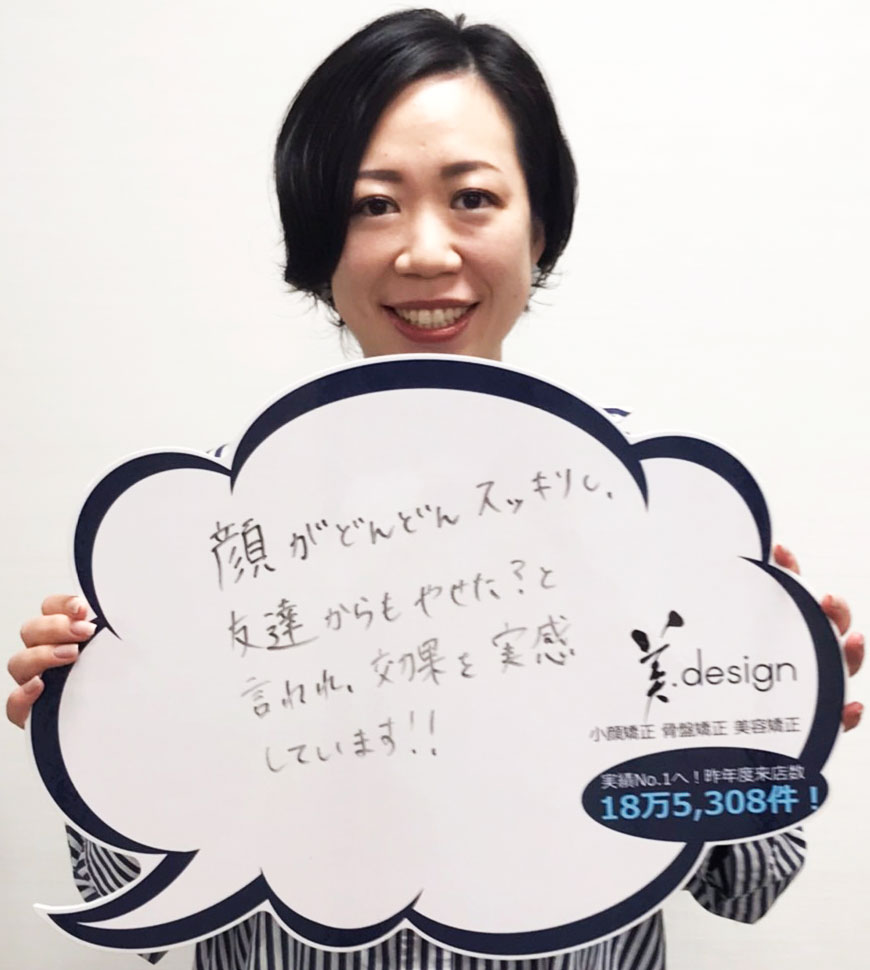 顔がどんどんスッキリし、
友達からもやせた?と
言われ、効果を実感
しています!!
美.design
小顔矯正 骨盤矯正 美容矯正
実績No.1へ!昨年度来店数
18万5,308件!